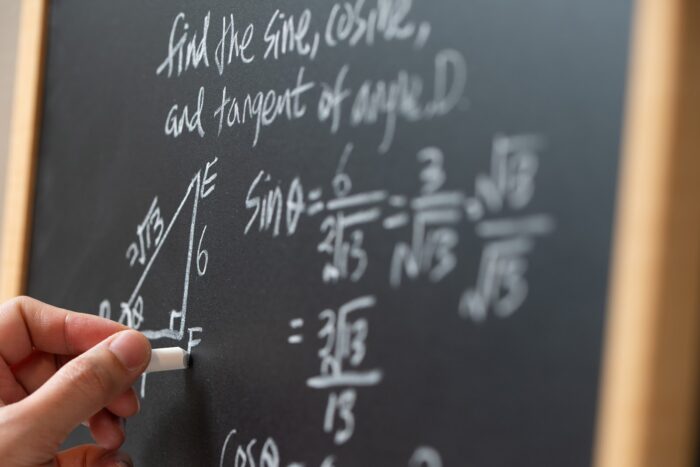 find the sine, cosine,
and tangent of angle D.
E
2√13
6
sin θ = 6/2√13 = 3/√13 · √13/√13
D θ
F
= 3√13/13
cos θ =